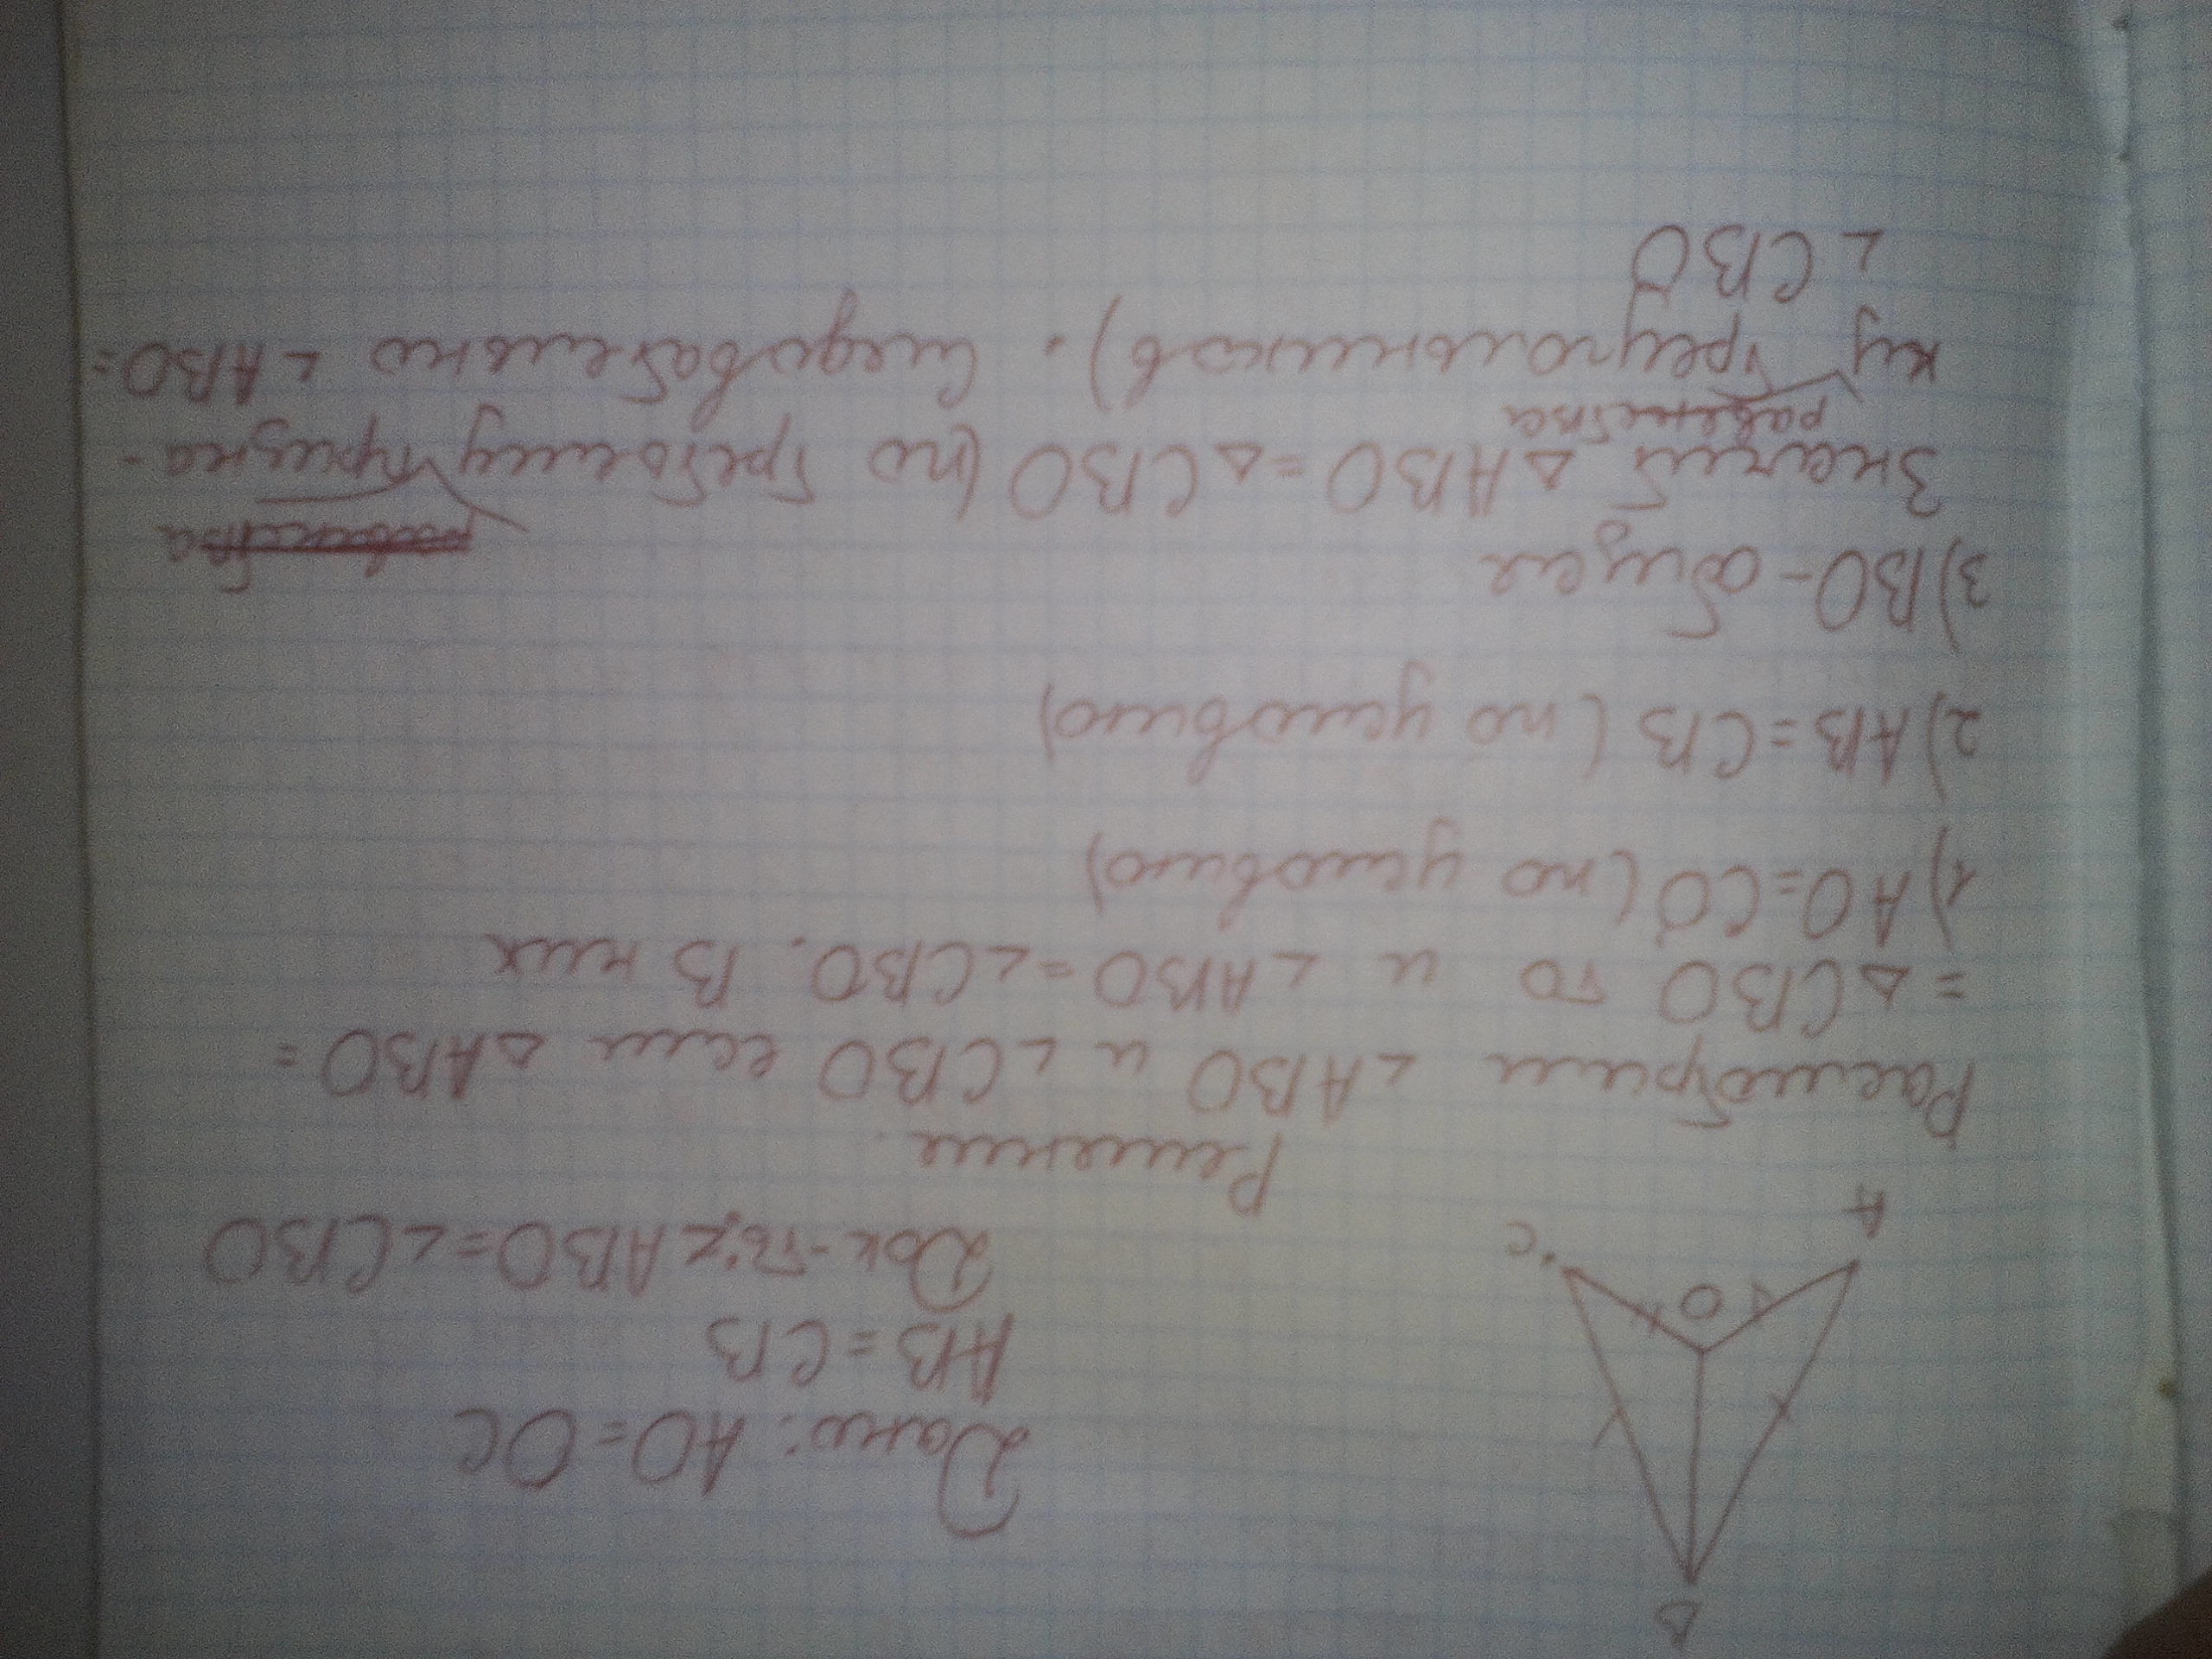 B
O
A
C
Дано: AO=OC
AB=CB
Док-ть: ∠ABO=∠CBO
Решение.
Расмотрим ∠ABO и ∠CBO если △ABO=
=△CBO то и ∠ABO=∠CBO. В них
1) AO=CO (по условию)
2) AB=CB (по условию)
3) BO-общая
равенства
Значит △ABO=△CBO (по третьему призна-
равенства
ку треугольников). Следовательно ∠ABO=
∠CBO